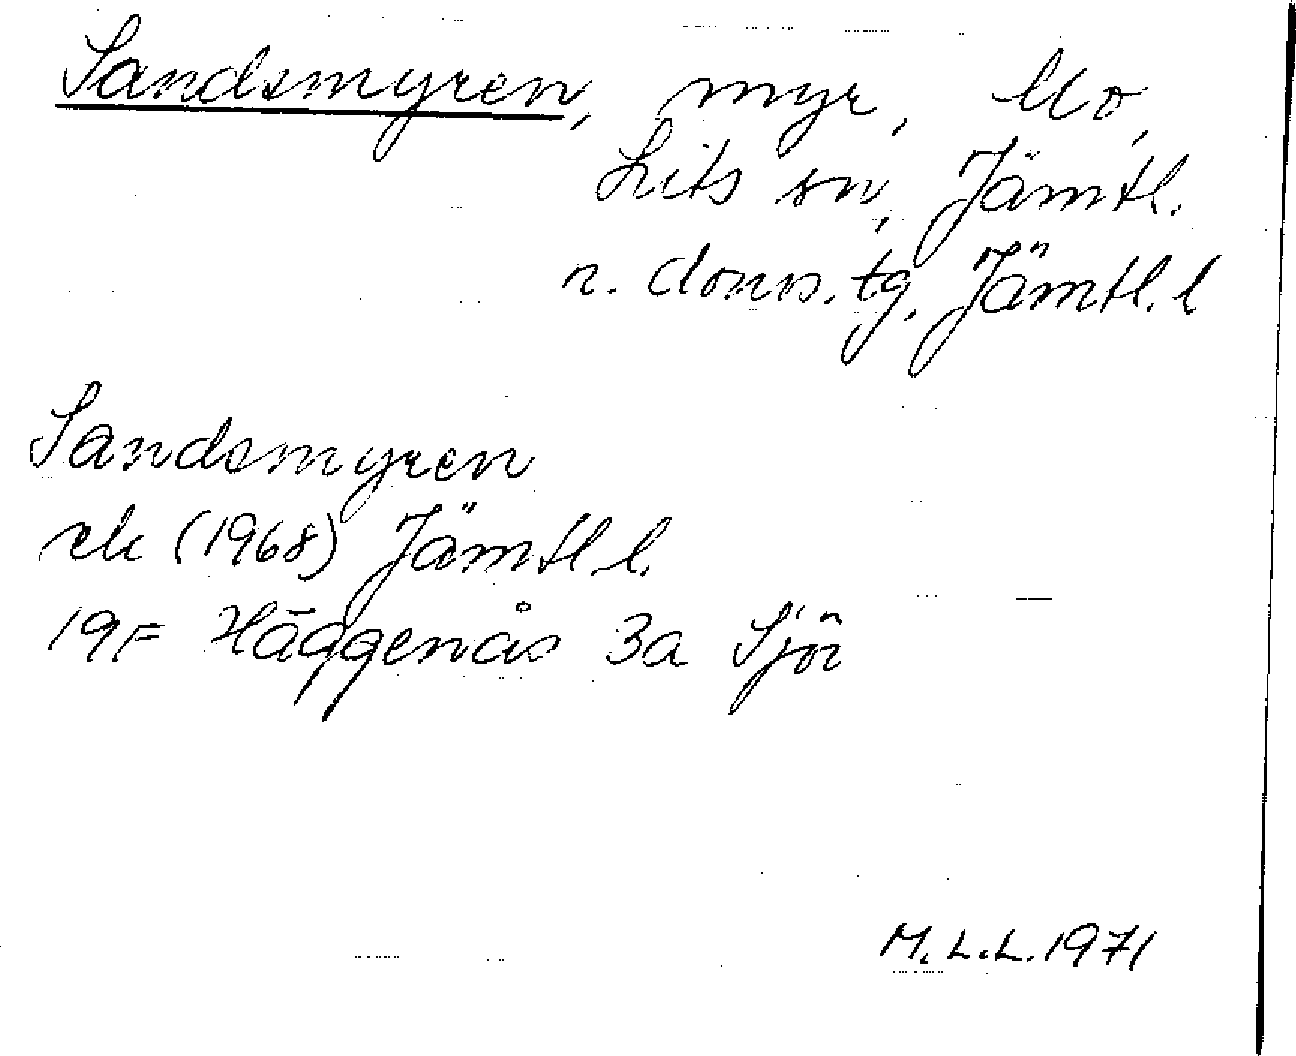 Sandsmyren, myr, Mo,
Lits sn, Jämtl.
n. doms. tg, Jämtl. l
Sandsmyren
ek (1968) Jämtl. l.
19F Häggenås 3a Sjör
M.L.L. 1971